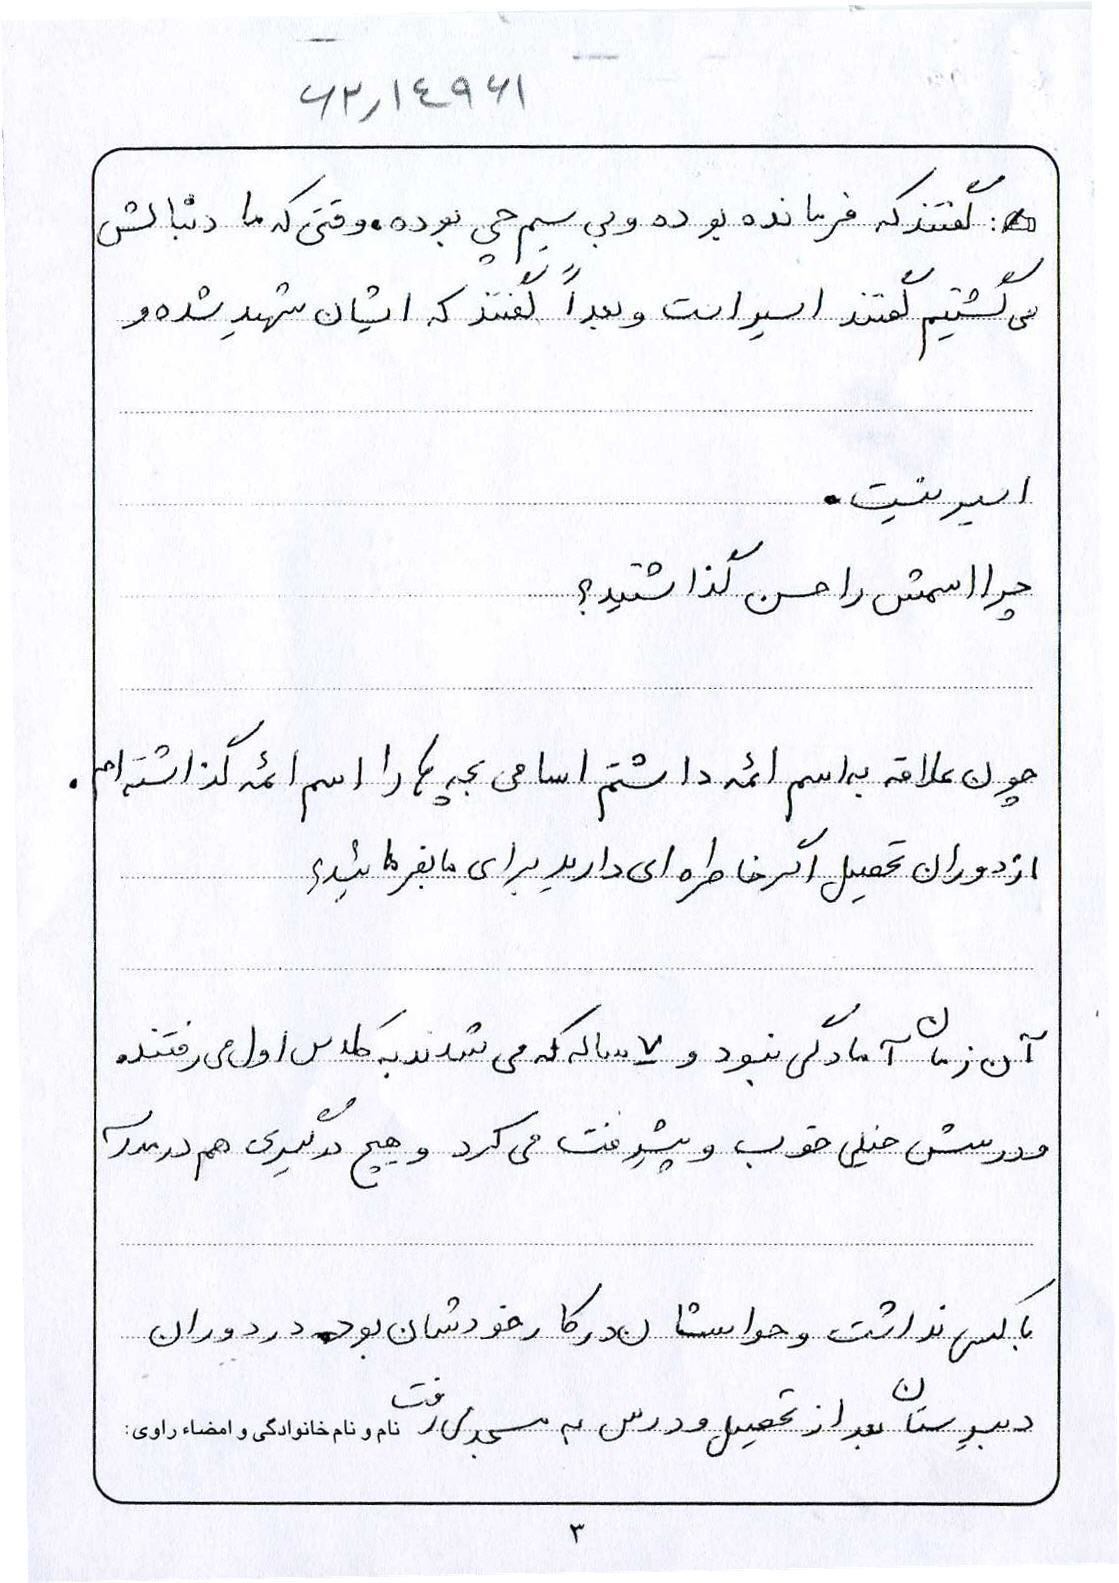 ۶۲٫۱۴۹۶۱
ج: گفتند که فرمانده بوده و بی سیم چی بوده. وقتی که ما دنبالش
می گشتیم گفتند اسیر است و بعداً گفتند که ایشان شهید شده و
اسیر نیست.
چرا اسمش را حسن گذاشتید؟
چون علاقه به اسم ائمه داشتم اسامی بچه ها را اسم ائمه گذاشته ام.
از دوران تحصیل اگر خاطره ای دارید برای ما بفرمائید؟
آن زمان آمادگی نبود و ۷ ساله که می شدند به کلاس اول می رفتند.
و درسش خیلی خوب و پیشرفت می کرد و هیچ درگیری هم در مدرسه
با کسی نداشت و حواسشان در کار خودشان بود. در دوران
دبیرستان بعد از تحصیل و درس به مسجد می رفت
نام و نام خانوادگی و امضاء راوی:
۳